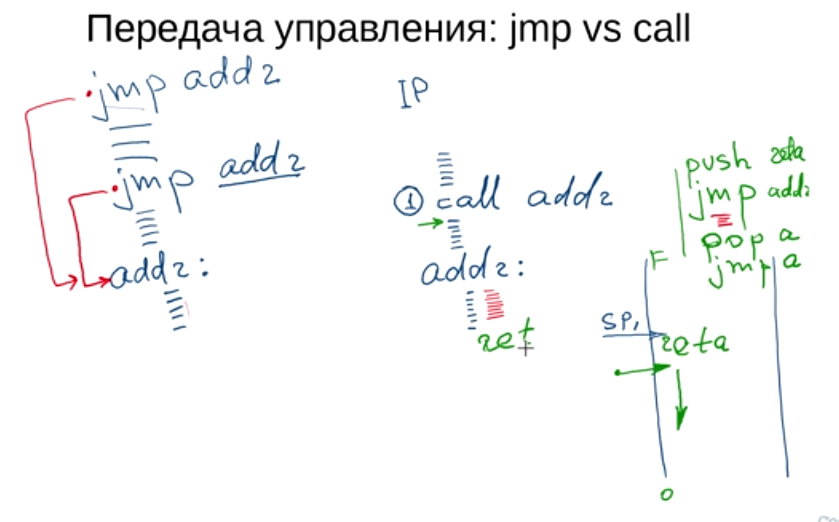 Передача управления: jmp vs call
jmp addr
jmp addr
addr:
IP
① call addr
addr:
ret
push reta
jmp addr
pop a
jmp a
F
SP,
reta
0